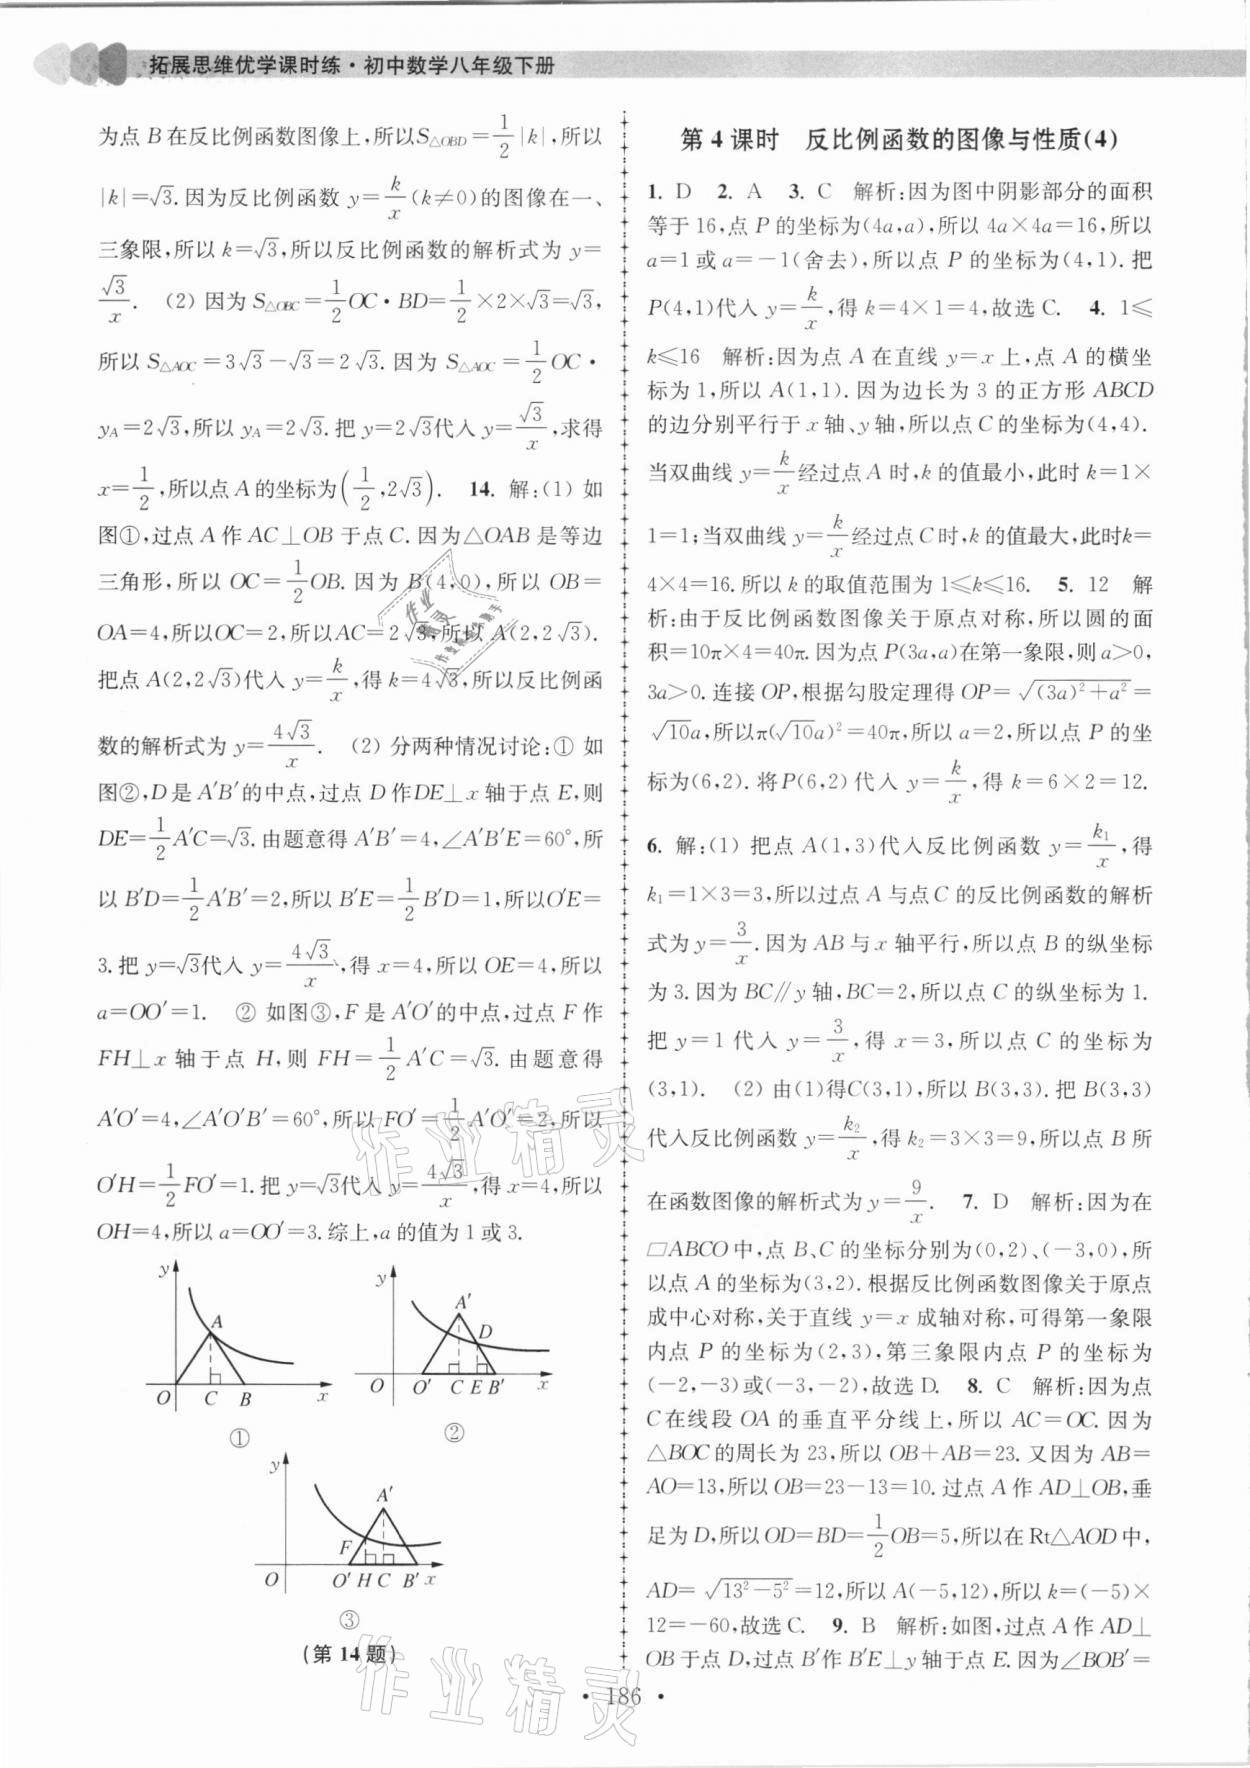 拓展思维优学课时练·初中数学八年级下册
为点 B 在反比例函数图像上,所以S△OBD=1/2|k|,所以
|k|=√3.因为反比例函数 y=k/x(k≠0)的图像在一、
三象限,所以 k=√3,所以反比例函数的解析式为 y=
√3/x. (2) 因为 S△OBC=1/2OC·BD=1/2×2×√3=√3,
所以 S△AOC=3√3-√3=2√3.因为 S△AOC=1/2OC·
yA=2√3,所以 yA=2√3.把 y=2√3代入 y=√3/x,求得
x=1/2,所以点 A 的坐标为(1/2,2√3). 14. 解:(1) 如
图①,过点 A 作 AC⊥OB 于点 C.因为△OAB 是等边
三角形,所以 OC=1/2OB.因为 B(4,0),所以 OB=
OA=4,所以OC=2,所以AC=2√3,所以 A(2,2√3).
把点 A(2,2√3)代入 y=k/x,得 k=4√3,所以反比例函
数的解析式为 y=4√3/x. (2) 分两种情况讨论:① 如
图②,D是 A′B′的中点,过点 D 作DE⊥x 轴于点 E,则
DE=1/2A′C=√3.由题意得 A′B′=4,∠A′B′E=60°,所
以 B′D=1/2A′B′=2,所以 B′E=1/2B′D=1,所以O′E=
3.把 y=√3代入 y=4√3/x,得 x=4,所以 OE=4,所以
a=OO′=1. ② 如图③,F 是 A′O′的中点,过点 F 作
FH⊥x 轴于点 H,则 FH=1/2A′C=√3.由题意得
A′O′=4,∠A′O′B′=60°,所以 FO′=1/2A′O′=2,所以
O′H=1/2FO′=1.把 y=√3代入 y=4√3/x,得 x=4,所以
OH=4,所以 a=OO′=3.综上,a 的值为 1 或 3.
y A O C B x
①
y A′ D O O′ C E B′ x
②
y A′ F O O′ H C B′ x
③
(第 14 题)
第 4 课时 反比例函数的图像与性质(4)
1. D 2. A 3. C 解析:因为图中阴影部分的面积
等于 16,点 P 的坐标为(4a,a),所以 4a×4a=16,所以
a=1 或 a=-1(舍去),所以点 P 的坐标为(4,1).把
P(4,1)代入 y=k/x,得 k=4×1=4,故选 C. 4. 1≤
k≤16 解析:因为点 A 在直线 y=x 上,点 A 的横坐
标为 1,所以 A(1,1).因为边长为 3 的正方形 ABCD
的边分别平行于 x 轴、y 轴,所以点 C 的坐标为(4,4).
当双曲线 y=k/x经过点 A 时,k 的值最小,此时 k=1×
1=1;当双曲线 y=k/x经过点 C 时,k 的值最大,此时k=
4×4=16.所以 k 的取值范围为 1≤k≤16. 5. 12 解
析:由于反比例函数图像关于原点对称,所以圆的面
积=10π×4=40π.因为点 P(3a,a)在第一象限,则 a>0,
3a>0.连接 OP,根据勾股定理得 OP=√((3a)²+a²)=
√10a,所以π(√10a)²=40π,所以 a=2,所以点 P 的坐
标为(6,2).将P(6,2)代入 y=k/x,得 k=6×2=12.
6. 解:(1) 把点 A(1,3)代入反比例函数 y=k₁/x,得
k₁=1×3=3,所以过点 A 与点 C 的反比例函数的解析
式为 y=3/x.因为 AB 与 x 轴平行,所以点 B 的纵坐标
为 3.因为 BC∥y 轴,BC=2,所以点 C 的纵坐标为 1.
把 y=1 代入 y=3/x,得 x=3,所以点 C 的坐标为
(3,1). (2) 由(1)得C(3,1),所以 B(3,3).把 B(3,3)
代入反比例函数 y=k₂/x,得 k₂=3×3=9,所以点 B 所
在函数图像的解析式为 y=9/x. 7. D 解析:因为在
▱ABCO 中,点 B、C 的坐标分别为(0,2)、(-3,0),所
以点 A 的坐标为(3,2).根据反比例函数图像关于原点
成中心对称,关于直线 y=x 成轴对称,可得第一象限
内点 P 的坐标为(2,3),第三象限内点 P 的坐标为
(-2,-3)或(-3,-2),故选 D. 8. C 解析:因为点
C 在线段 OA 的垂直平分线上,所以 AC=OC.因为
△BOC 的周长为 23,所以 OB+AB=23.又因为 AB=
AO=13,所以 OB=23-13=10.过点 A 作 AD⊥OB,垂
足为 D,所以 OD=BD=1/2OB=5,所以在 Rt△AOD 中,
AD=√(13²-5²)=12,所以 A(-5,12),所以 k=(-5)×
12=-60,故选 C. 9. B 解析:如图,过点 A 作 AD⊥
OB 于点 D,过点 B′作 B′E⊥y 轴于点 E.因为∠BOB′=
·186·
作业精灵
作业精灵